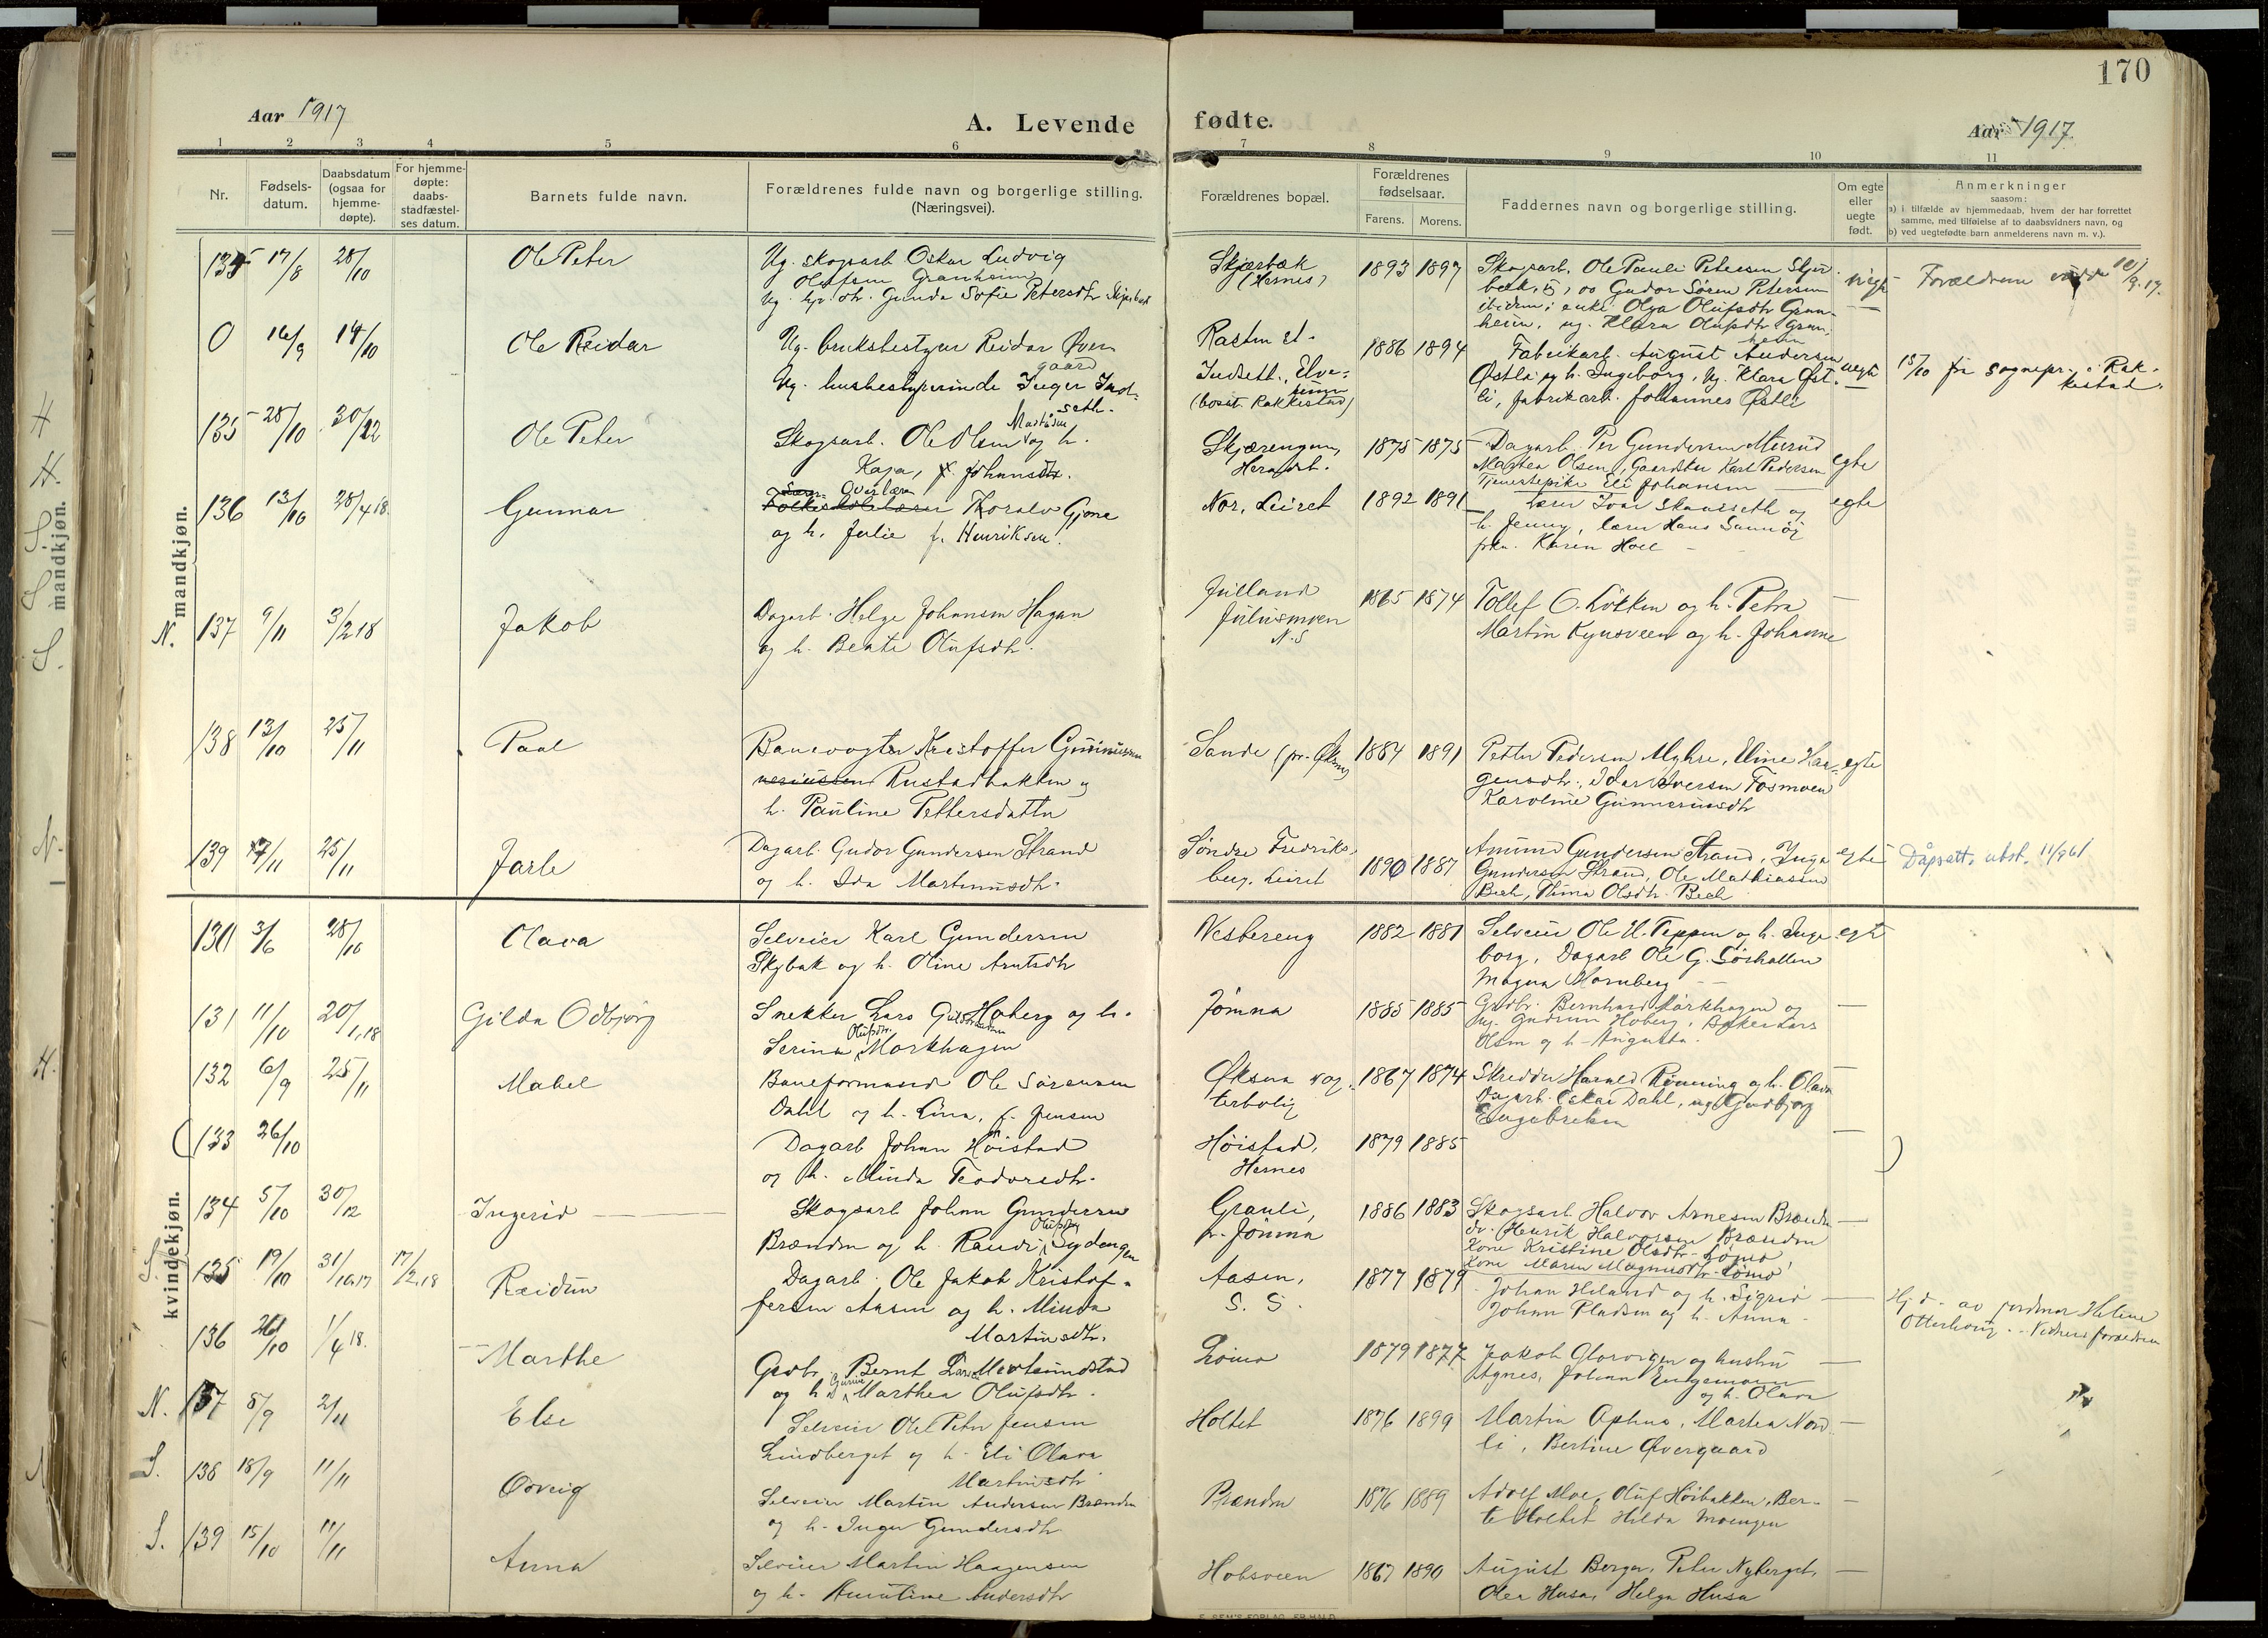 170
Aar 1917
A. Levende
fødte.
Aar 1917
1 2 3 4 5 6 7 8 9 10 11
Nr.
Fødsels-
datum.
Daabsdatum
(ogsaa for
hjemme-
døpte).
For hjemme-
døpte:
daabs-
stadfæstel-
ses datum.
Barnets fulde navn.
Forældrenes fulde navn og borgerlige stilling.
(Næringsvei).
Forældrenes bopæl.
Forældrenes
fødselsaar.
Farens. Morens.
Faddernes navn og borgerlige stilling.
Om egte
eller
uegte
født.
Anmerkninger
saasom:
a) i tilfælde av hjemmedaab, hvem der har forrettet
samme, med tilføielse af to daabsvidners navn, og
b) ved uegtefødte barn anmelderens navn m. v.).
mandkjøn.
17/8 28/10 Ole Peter
Ug. skogsarb. Oskar Ludvig
Olufsen Granheim
Ug. Gunda Sofie Petersdtr
Skjærbæk
(Hernes)
1893 1897
Skogsarb. Ole Pauli Petersen
Gudor Søren Petersen
ibidem; enke Olga Olufsdtr Gran-
heim, ug. Klara Olufsdtr Gran-
heim
uegte
Forældrene
0 16/9 14/10 Ole Reidar
Ug. bruksbestyrer Reidar Øver-
gaard
Ug. husbestyrerinde Inger Ind-
seth.
Indseth, Elve-
(bosit. Rakkestad)
1886 1894
Fabrikarb. August Andersen
Østli og h. Ingeborg, Ug. Klara Øst-
li, fabrikarb. Johannes Østli
uegte
15/10 fra sognepr. i Rak-
kestad.
135 28/10 30/12 Ole Peter
Skogsarb. Ole Olsen og h.
Kaja, f. Johansdtr.
Skjærengen,
1875 1875
Dagarb. Per Gundersen
Marthea Olsen, Gaardbr Karl Pedersen
Tjenestepike Eli Johansen
egte
136 13/10 28/4 18. Gunnar
Overlærer
Thoralv Gjone
og h. Julie f. Henriksen.
Nor, Leiret
1892 1891
Lærer Ivar Skaaseth og
h. Jenny, lærer Hans
frkn. Karen Hoel
egte
N. 137 9/11 3/2 18 Jakob
Dagarb. Helge Johansen Hagen
og h. Beate Olufsdtr.
Jülland
Juliusmoen
N.S
1865 1874
Tollef O. Løkken og h. Petra
Martin Kynsveen og h. Johanne
138 13/10 25/11 Paal
Banevogter Kristoffer
Rustadbakken og
h. Pauline Pettersdatter
Sande (pr. Øksna)
1884 1891
Petter Pedersen Myhre, Eline Haa-
gensdtr., Idar Iversen Fosmoen
Karoline Gunnerusdtr
egte
139 25/11 Jarle
Dagarb. Gudor Gundersen Strand
og h. Ida Martinusdtr.
Søndre Fredriks-
berg. Leiret
1890 1887
Amund Gundersen Strand, Inga
Gundersen Strand, Ole Mathiassen
Bech, Thina Olsdtr. Bech
egte
Dåpsatt. utst. 11/9 61
kvindekjøn.
130 3/6 28/10 Olava
Selveier Karl Gundersen
Skybak og h. Oline Arntsdtr
Vestereng
1882 1881
Selveier Ole H. Teppen og h. Inge-
borg, Dagarb Ole G. Sörhallen
Magna Hornberg
egte
131 11/10 20/1.18 Gilda Odbjørg
Snekker Lars Hoberg og h.
Serina Olufsdtr. Morkhagen
Jömna
1885 1885
Grdbr. Bernhard Mørkhagen og
ug. Gudrun Hoberg, Lars
Olsen og h. Augusta.
132 6/9 25/11 Mabel
Baneformand Ole Sørensen
Dahl og h. Lina, f. Jensen
Øksna vog-
terbolig
1867 1874
Skredder Harald Rønning og h. Olava
Dagarb. Oskar Dahl, ug. Gudbjørg
Engebretsen
(133 26/10
Dagarb Johan Høistad
og h. Minda Teodorsdtr.
Høistad,
Hernes
1879 1885
134 5/10 30/12 Ingerid
Skogsarb Johan Gundersen
Brænden og h. Randi Olufsdtr Sydengen
Grauli,
pr. Jömna
1886 1883
Skogsarb. Halvor Arnesen Brænden
do. Henrik Halvorsen Brænden
Kone Kristine Olsdtr. Lömo
Kone Maren Magnusdtr. Lömo
S. 135 19/10 31/10.17 17/2.18 Reidun
Dagarb. Ole Jakob Kristof-
fersen Aasen og h. Minda
Martinsdtr.
Aasen,
S. S.
1877 1879
Johan Heland og h. Sigrid
Johan Pladsen og h. Anna
Hj. d. av jordmor Helene
Otterhaug. Vidner: forældrene
136 26/10 1/4 18. Marthe
Grdbr. Bernt Larsen
og h. Marthea Olufsdtr.
Lömo
1879 1877
Jakob Glorvigen og hustru
Agnes, Johan Engemoen
og h. Olava
N. 137 8/9 2/11 Else
Selveier Ole Peter Jensen
Lindberget og h. Eli Olava
Martinsdtr
Holtet
1876 1899
Martin Ophus, Martea Nord-
li, Bertine Øvergaard
S. 138 18/9 11/11 Ovveig
Selveier Martin Andersen Brænden
og h. Inger Gundersdtr
Brænden
1876 1889
Adolf Moe, Oluf Høibakken, Ber-
te Holtet Hilda Moengen
S. 139 15/10 11/11 Anna
Selveier Martin Haagensen
og h. Andersdtr
Hobsveen
1867 1890
August Berger, Peter Nyberget,
Olea Husa, Helga Husa